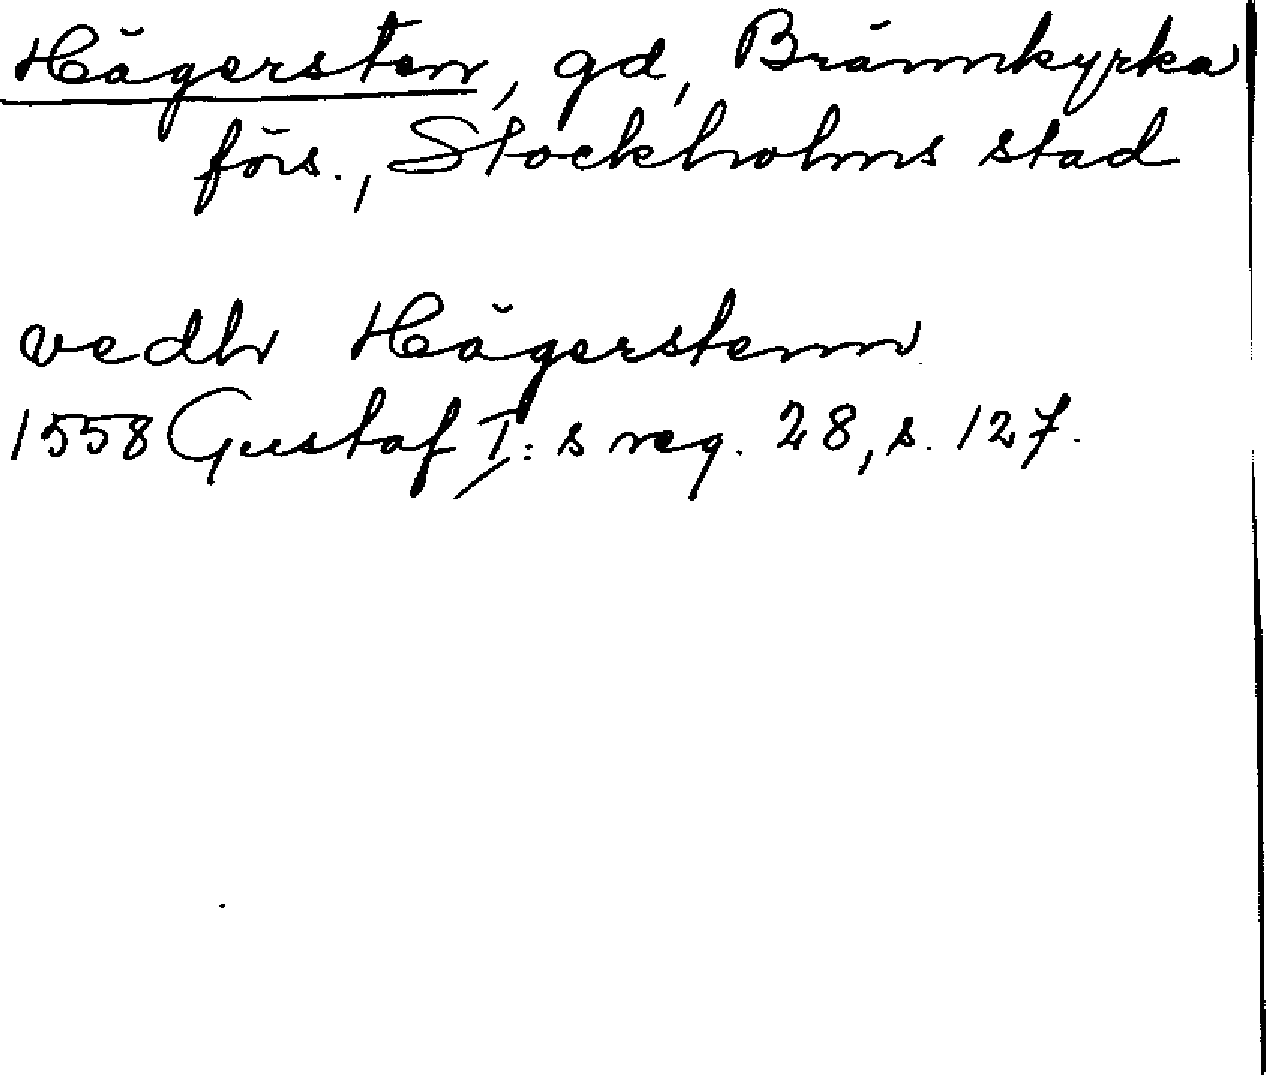 Hägersten, gd, Brännkyrka
förs., Stockholms stad
vedh Hägerstenn
1558 Gustaf I:s reg. 28, s. 127.